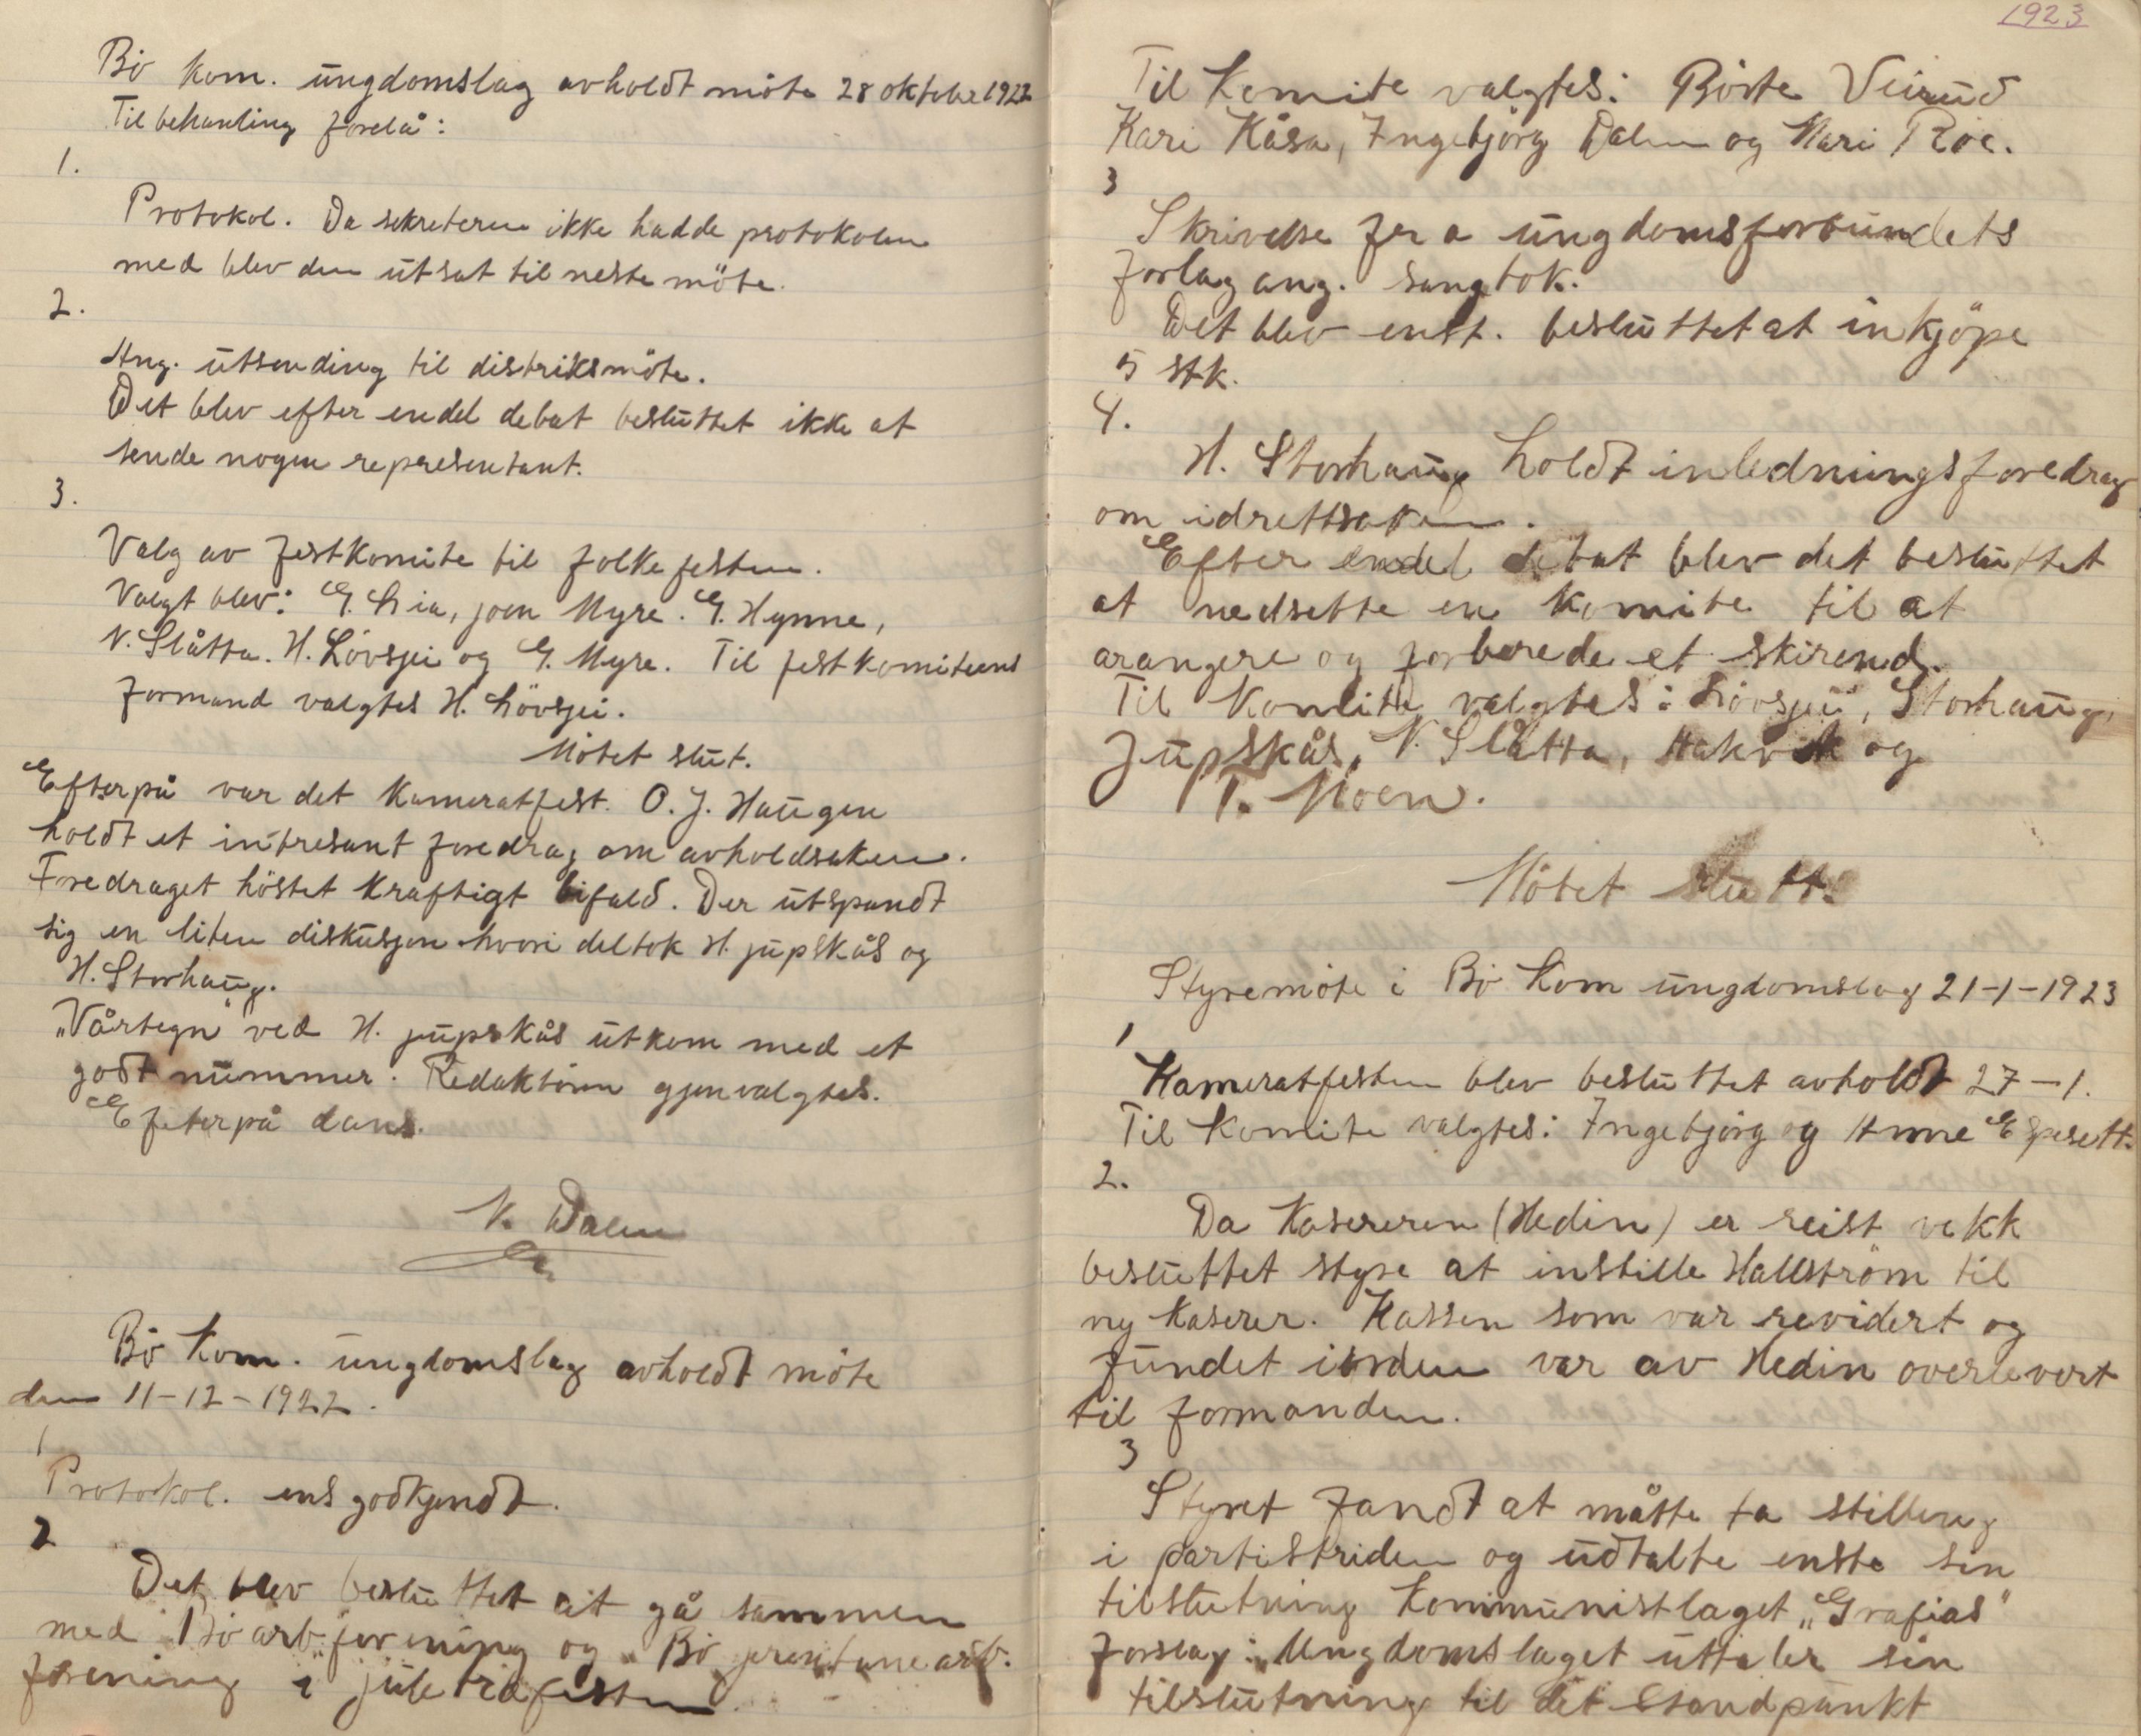 Bö Kom. ungdomslag avholdt möte 28 oktobr 1922
Til behanling forelå:
1.
Protokol. Da sekreteren ikke hadde protokolen
med blev den utsat til neste möte.
2.
Ang. utsending til distriksmöte.
Det blev efter endel debat besluttet ikke at
sende nogen representant.
3.
Valg av festkomite til folkefesten.
Valgt blev: G. Lia, joen Myre. G. Hynne,
N. Slåtta. H. Lövsjei og G. Myre. Til festkomiteens
formand valgtes H. Lövsjei.
Mötet slut.
Efterpå var det Kameratfest. O. J. Haugen
holdt et intresant foredrag om avholdsaken.
Foredraget höstet kraftigt bifald. Der utspandt
sig en liten diskusjon hvori deltok H. jupskås og
H. Storhaug.
„Vårtegn" ved H. jupskås utkom med et
godt nummer. Redaktören gjenvalgtes.
Efeterpå dans.
N. Dalen
Bö Kom. ungdomslag avholdt möte
den 11-12-1922.
1
Protokol. ens godkjendt.
2
Det blev besluttet at gå sammen
med Bö arb. forening og Bö arb.
forening i juletrefesten.
1923
Til Komite valgtes: Börte Veirud
Kari Kåsa, Ingebjörg Dalen og Mari Roe.
3
Skrivelse fer a ungdomsforbundets
forlag ang. sangbok.
Det blev enst. besluttet at inkjöpe
5 stk.
4.
H. Storhaug holdt inledningsforedrag
om idrettsaken.
Efter endel debat blev det besluttet
at nedsette en Komite til at
arangere og forberede et skirend.
Til Komite valgtes: Lövsjei, Storhaug,
Jupskås, N. Slåtta, Hakvik og
T. Moen.
Mötet slutt.
Styremöte i Bö Kom ungdomslag 21-1-1923
1
Kameratfesten blev besluttet avholdt 27-1.
Til Komite valgtes: Ingebjörg og Anne Espesett.
2.
Da Kasereren (Hedin) er reist vekk
besluttet styre at instille Hallström til
ny Kaserer. Kassen som var revidert og
fundet iorden var av Hedin overlevert
til formanden.
3
Styret fandt at måtte ta stilling
i partistriden og udtalte enste sin
tilslutning Kommunistlaget „Grafias"
forslag: „Ungdomslaget uttaler sin
tilslutning til det standpunkt